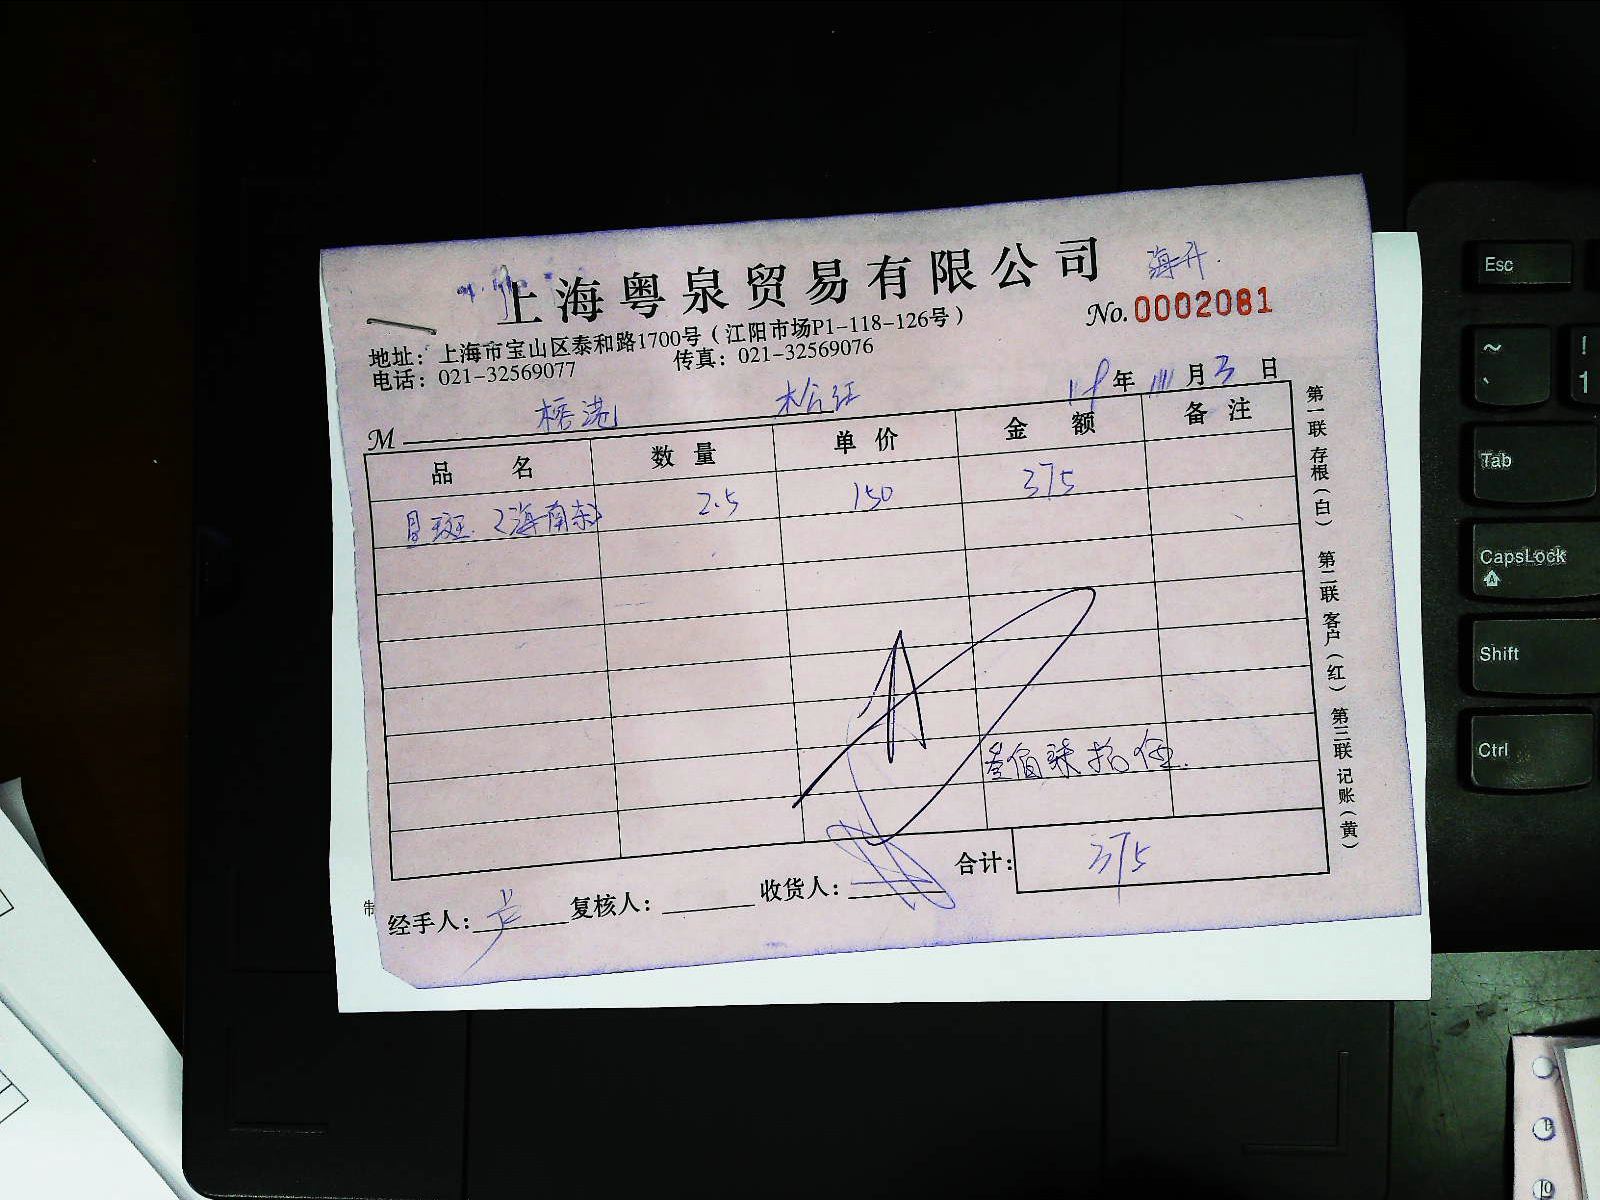 海升
上海粤泉贸易有限公司
No. 0002081
地址：上海市宝山区泰和路1700号（江阳市场P1-118-126号）
电话：021-32569077 传真：021-32569076
年 月 3 日
M 榕港 松江
品 名 数 量 单 价 金 额 备 注
斑（海南东） 2.5 150 375
叁佰柒拾伍
合计： 375
经手人： 卢 复核人： 收货人：
第一联 存根（白） 第二联 客户（红） 第三联 记账（黄）
制
Esc
~ !
` 1
Tab
CapsLock
A
Shift
Ctrl